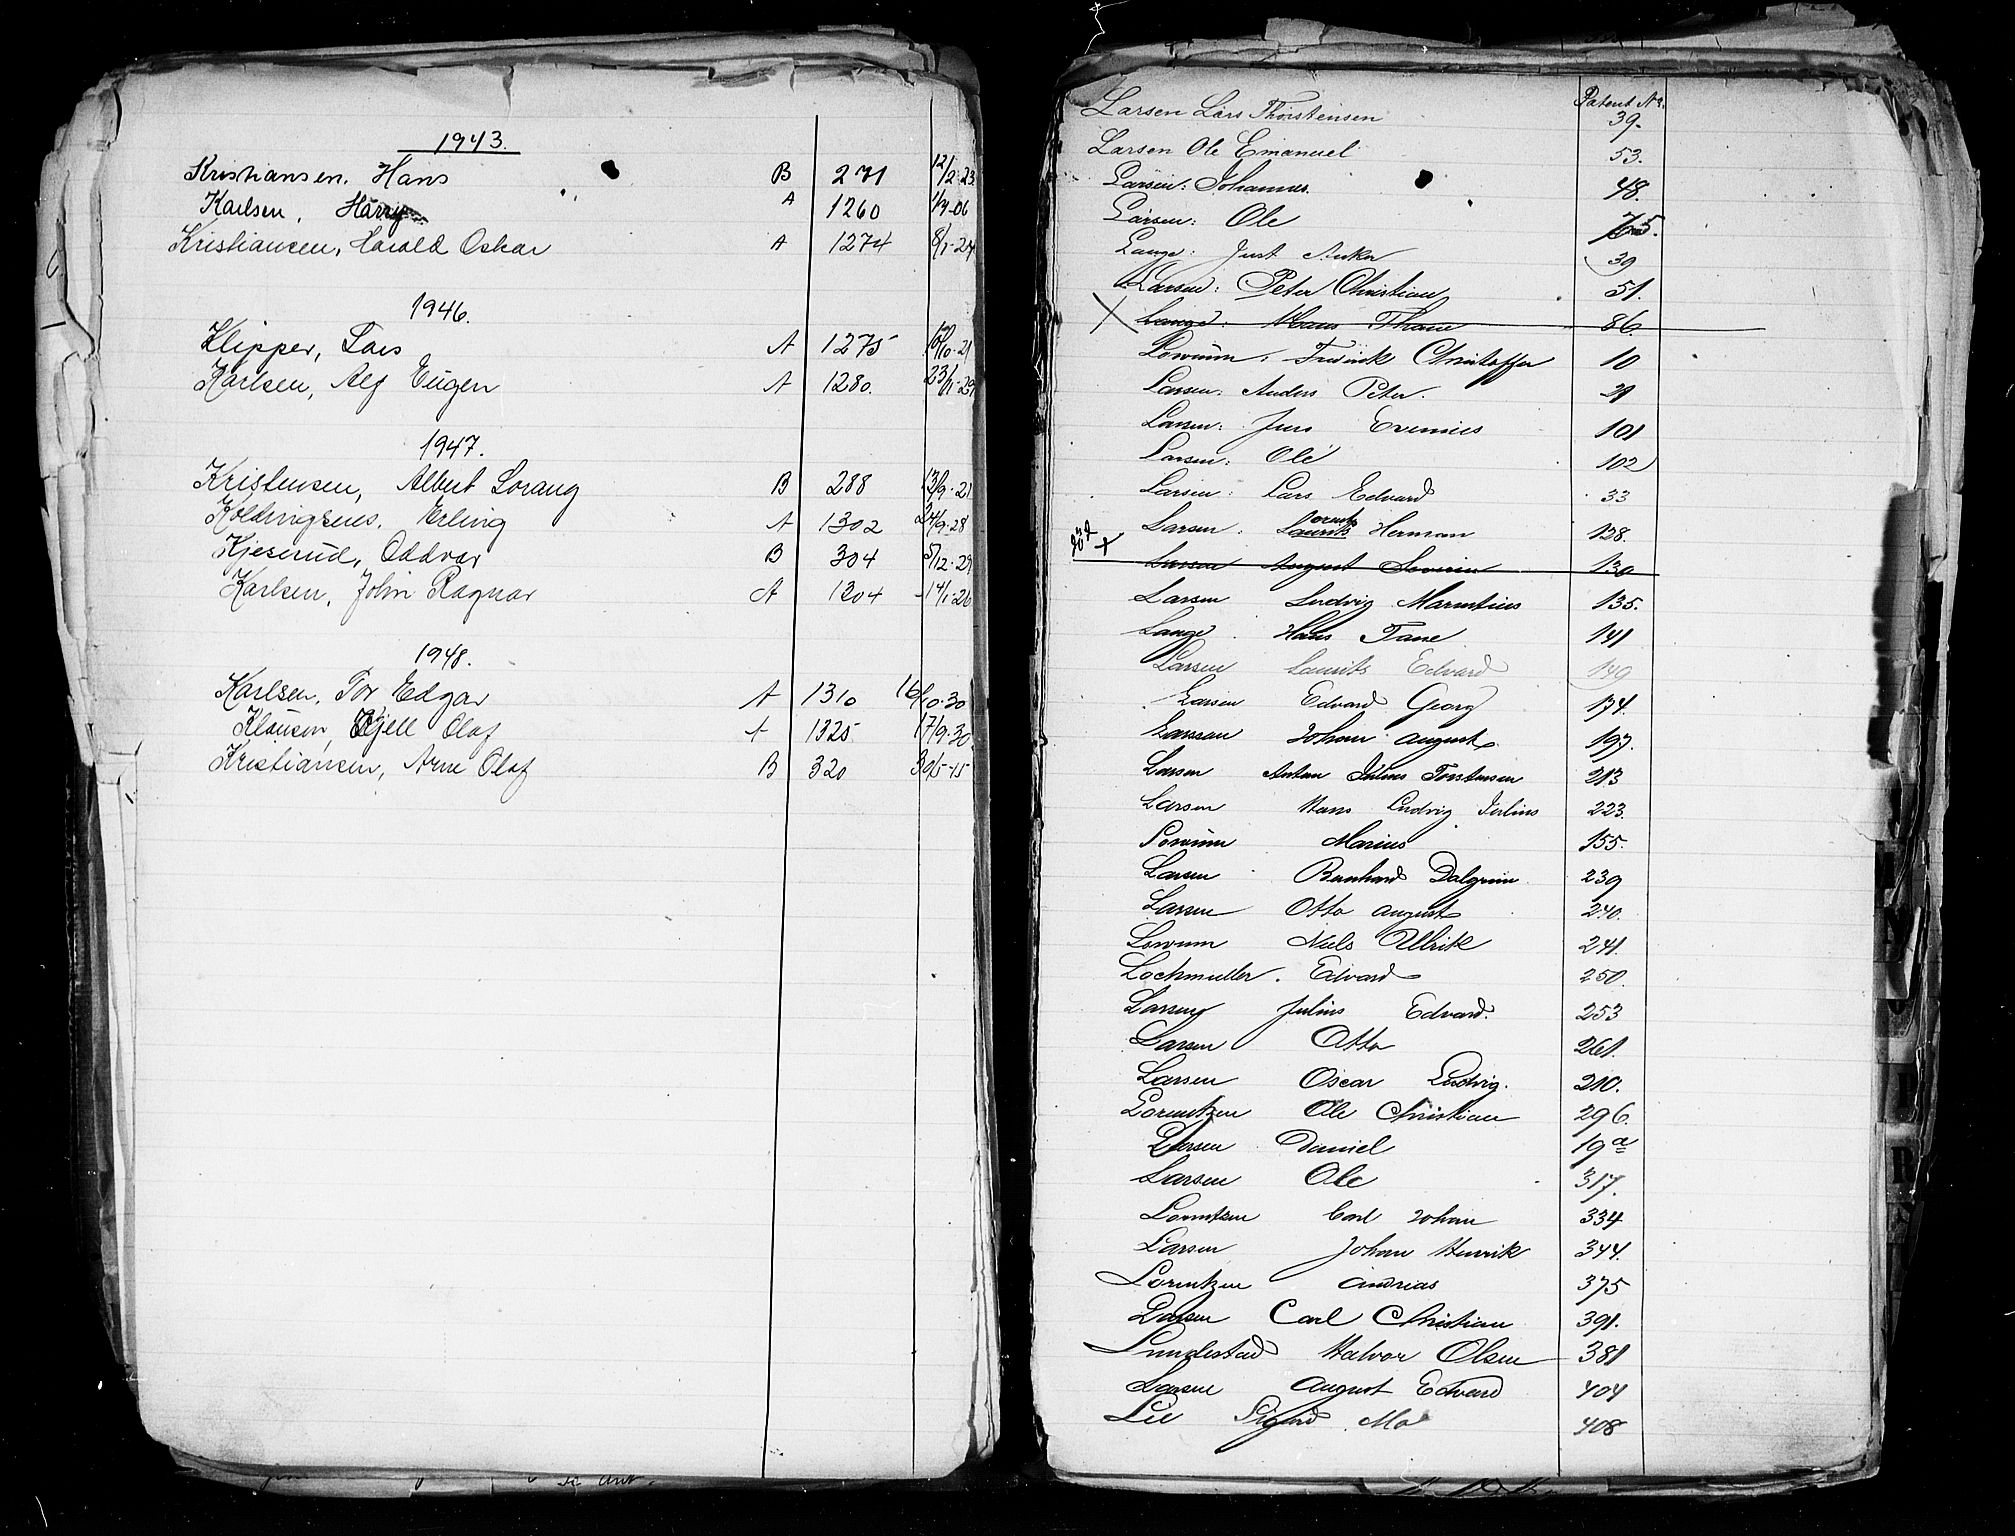 1943.
Kristiansen, Hans B 271 12/2-23
Karlsen, Harry A 1260 1/4-06
Kristiansen, Harald Oskar A 1274 8/1-24
1946.
Klipper, Lars A 1275 10-21
Karlsen, Alf Eugen A 1280.
1947.
Kristensen, Albert Lorang B 288 13/9-21
Erling A 1302 24/9-28
Kjeserud, Oddvar B 304 5/12-29
Karlsen, John Ragnar A 1304 14/1-26
1948.
Karlsen, Tor Edgar A 1310 16/10-30
Klausen, Kjell Olaf A 1325 17/9-30
Kristiansen, Arne Olaf B 320 30/5-15
Patent No.
Larsen Lars Thorstensen 39.
Larsen Ole Emanuel 53.
Larsen: Johannes. 48.
Larsen: Ole 75.
Lange: Just Anker 39
Larsen: Peter Christian 51.
Lange: Hans Thane 86
Lorum: Fredrick Christoffer 10
Larsen: Anders Peter. 29
Larsen: Jens Evenius 101
Larsen: Ole 102
Larsen: Lars Edvard 33
Larsen: Laurits Herman 128.
Larsen August Severin 130
Larsen Ludvig Marintius 135.
Lange Hans Tane 141
Larsen Laurits Edvard 149
Larsen Edvard Georg 174.
Larsen Johan August 197.
Larsen Anton Julius Torstensen 213
Larsen Hans Ludvig Julius 223.
Lorum Marius 155.
Larsen Bernhard Dalgrim 239
Larsen Otto August 240.
Lorum Niels Ullrik 241.
Lochmuller. Edvard 250.
Larsen Julius Edvard. 253
Larsen Otto 261.
Larsen Oscar Ludvig. 210.
Lorentzen Ole Christian 296.
Larsen Daniel 19a
Larsen Ole 317.
Lorentzen Carl Johan 334
Larsen Johan Henrik 344.
Lorentzen Andreas 375
Larsen Carl Christian 391.
Lundestad Halvor Olsen 381
Larsen August Edvard 404
Lie Sigurd Mo 408